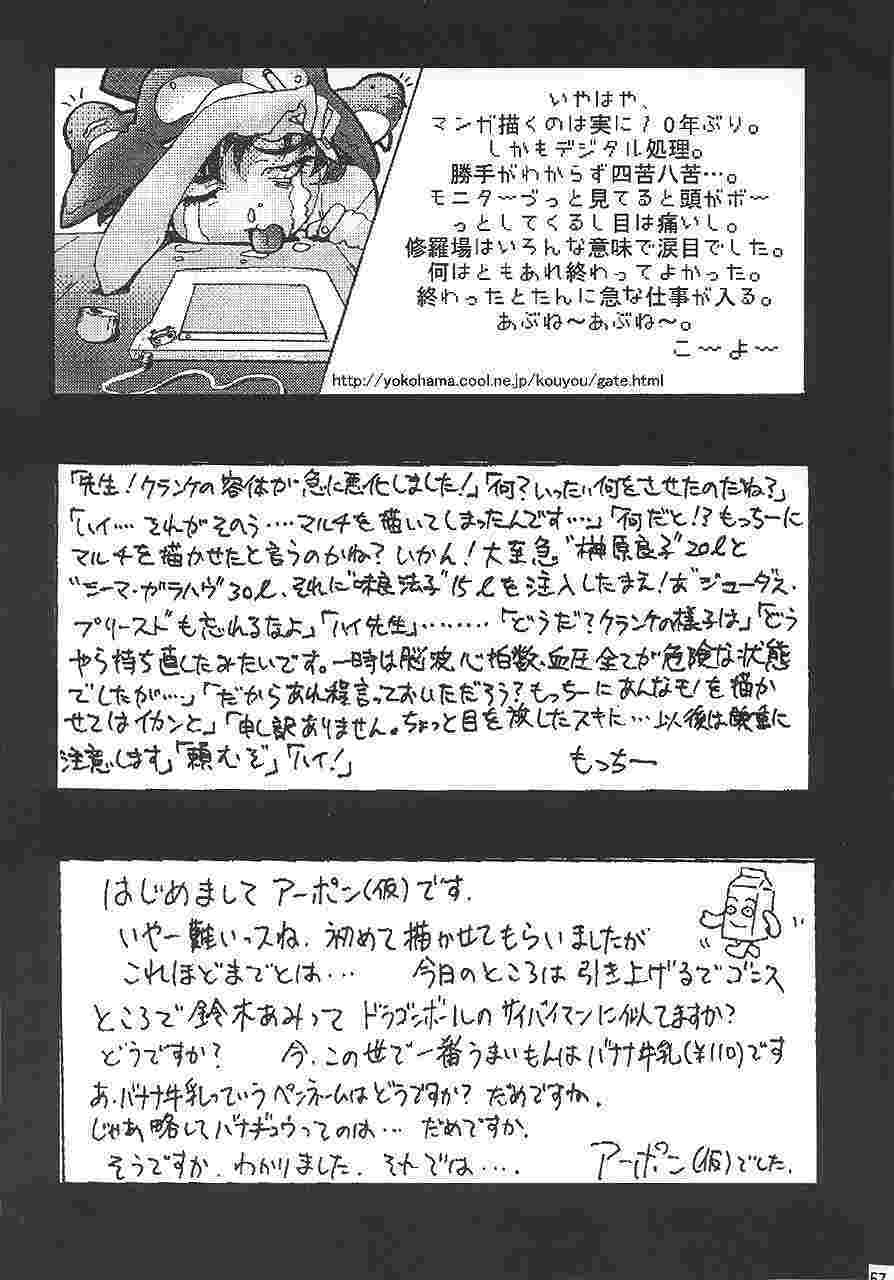 いやはや、
マンガ描くのは実に10年ぶり。
しかもデジタル処理。
勝手がわからず四苦八苦…。
モニターづっと見てると頭がボ〜
っとしてくるし目は痛いし。
修羅場はいろんな意味で涙目でした。
何はともあれ終わってよかった。
終わったとたんに急な仕事が入る。
あぶね〜あぶね〜。
こ〜よ〜
http://yokohama.cool.ne.jp/kouyou/gate.html
「先生!クランケの容体が急に悪化しました!」「何?いったい何をさせたのだね?」
「ハイ…それがそのう…マルチを描いてしまったんです…」「何だと!?もっちーに
マルチを描かせたと言うのかね?いかん!大至急"榊原良子"20lと
"ニーマ・ガラハヴ"30l、それに"味良法子"15lを注入したまえ!あ"ジューダス・
プリースト"も忘れるなよ」「ハイ先生」………「どうだ?クランケの様子は」「どう
やら持ち直したみたいです。一時は脳波、心拍数、血圧全てが危険な状態
でしたが…」「だからあれ程言っておいただろう?もっちーにあんなモノを描か
せてはイカンと」「申し訳ありません。ちょっと目を放したスキに…以後は慎重に
注意します」「頼むぞ」「ハイ!」 もっちー
はじめまして アーポン(仮)です.
いやー難いっスね. 初めて描かせてもらいましたが
これほどまでとは… 今日のところは引き上げるでゴンス
ところで鈴木あみって ドラゴンボールのサイバイマンに似てますか?
どうですか? 今、この世で一番うまいもんはバナナ牛乳(¥110)です
あ、バナナ牛乳っていうペンネームはどうですか? だめですね.
じゃあ略してバナギュウってのは… だめですか.
そうですか. わかりました. それでは…. アーポン(仮)でした.
67